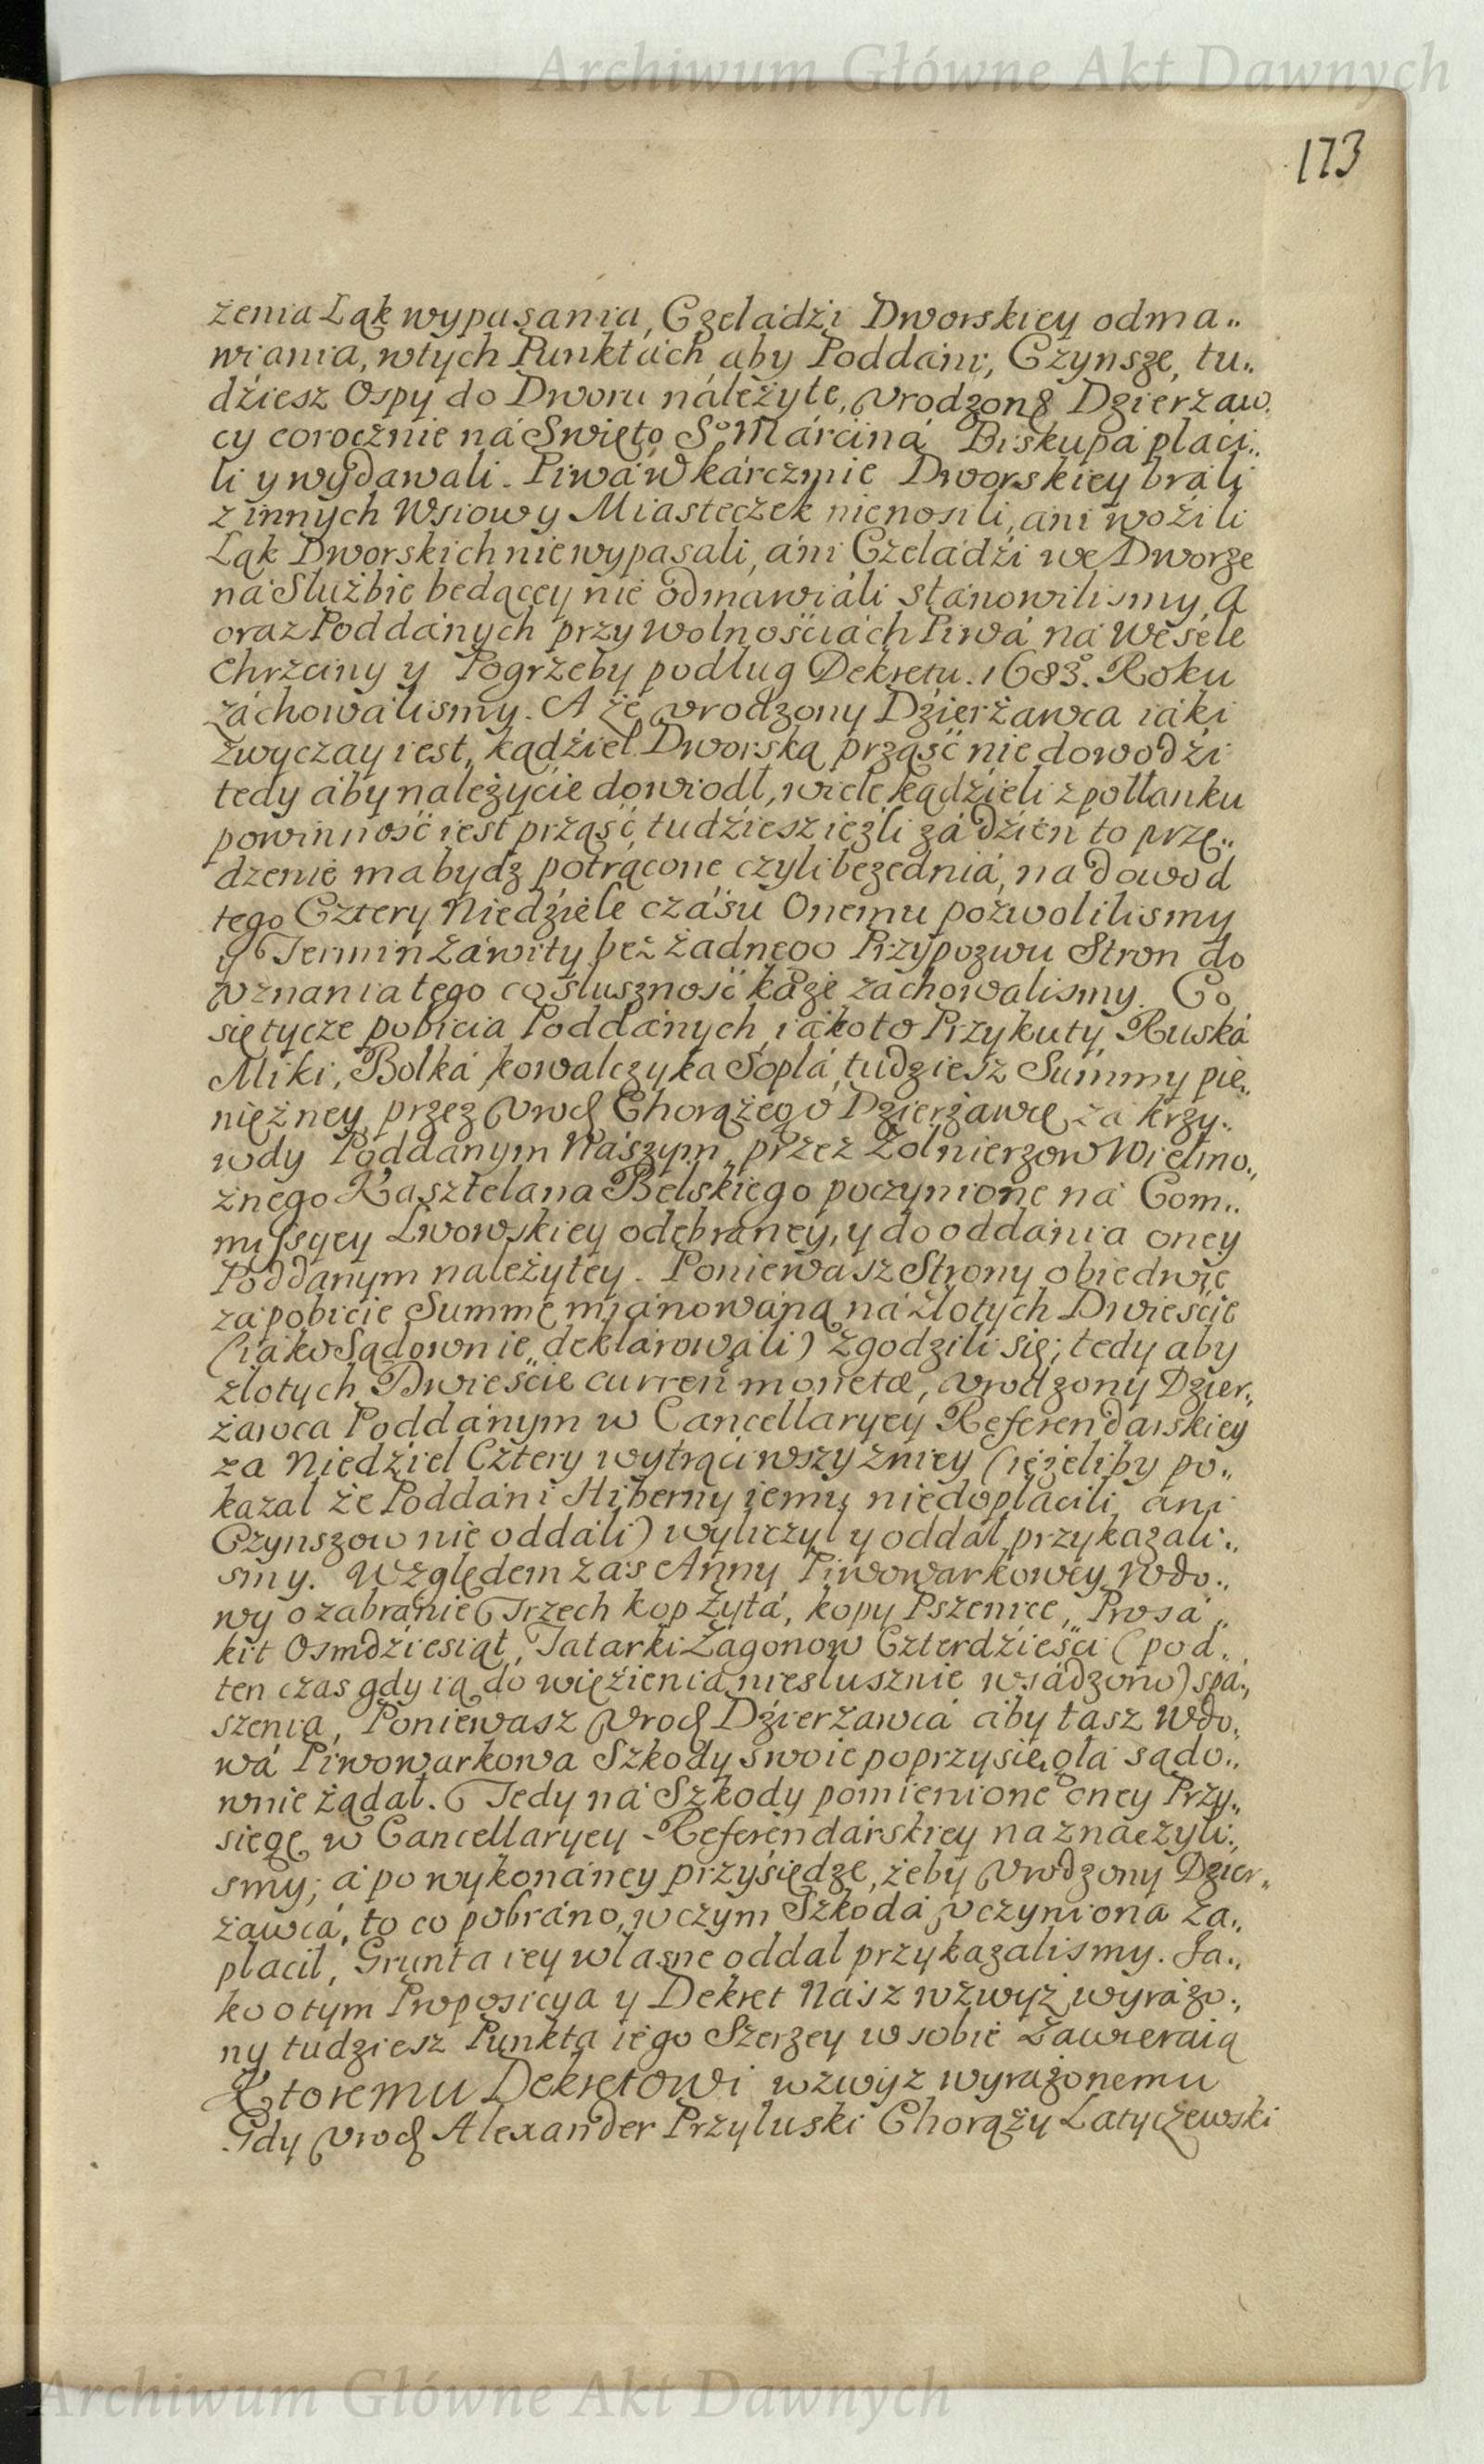 Archiwum Główne Akt Dawnych
173
żenia Ląk wypasania, Czeladźi Dworskiey odma„
wiania, wtych Punktách aby Poddáni, Czynsze, tu„
dźiesz Ospy do Dworu náleżyte, Vrodzone Dzierżaw„
cy corocznie ná Swięto S° Marciná Biskupá płaci„
li y wydawali. Piwá w kárczmie Dworskiey bráli
z innych Wsiow y Miasteczek nienosili, ani woźili
Ląk Dworskich niewypasali, áni Czeladźi we Dworze
ná Służbie bedącey nie odmawiáli stánowilismy. A
oraz Poddánych przy wolnośćiách Piwá ná Wesele
Chrzciny y Pogrzeby podług Dekretu. 1683° Roku
záchowálismy. A że vrodzony Dzierżawca iáki
zwyczay iest, kądźiel Dworską prząść nie dowodźi
tedy áby należycie dowiodł, wiele kądźieli z połłanku
powinność iest prząść, tudźiesz ieźli zá dźień to przę„
dzenie ma bydz potrącone czyli bezednia, na dowod
tego Cztery Niedźiele czásu Onemu pozwolilismy
y Termin Záwity bez żadnego Przypozwu Stron do
vznania tego co słuszność każe záchowálismy. Co
się tycze pobicia Poddánych, iáko to Przykuty, Ruská
Miki, Bolká kowalczyka Soplá, tudziesz Summy pie„
niężney przez Vrod Chorążego Dzierżawcę zá krzy„
wdy Poddanym Naszym, przez Zołnierzow Wielmo„
żnego Kasztelana Bełskiego poczynione ná Com„
missyey Lwowskiey odebráney, y do oddánia oney
Poddanym należytey. Poniewász Strony obiedwie
zá pobicie Summę miánowaną ná złotych Dwieście
(iáko Sądownie deklárowáli) zgodzili się; tedy aby
złotych Dwieście curren moneta, vrodzony Dzier„
żawca Poddánym w Cancellaryey Referendarskiey
za Niedźiel Cztery wytrąciwszy zniey (ieżeliby po„
kazal że Poddáni Hiberny iemu niedopłácili, áni
Czynszow nie oddáli) wyliczył y oddał przykazáli„
smy. Względem zás Anny Piwowarkowey Wdo„
wy o zabranie Trzech kop Żytá, kopy Pszenice, Prosá
kit Osmdźiesiąt, Tatarki Zágonow Czterdźieści (pod
ten czas gdy ią do więźienia niesłusznie wsádzono) spá„
szenia, Poniewasz Vrod Dźierżawcá áby tasz Wdo„
wá Piwowarkowa Szkody swoie poprzysięgła sądo„
wnie żądał. Tedy ná Szkody pomienione oney Przy„
sięgę w Cancellaryey Referendárskiey naznáczyli„
smy; á po wykonáney przysiędze, żeby Vrodzony Dzier„
żawcá, to co pobráno, w czym Szkodá vczyniona zá„
płacił, Grunta iey własne oddał przykazalismy. Ja„
ko o tym Propozicya y Dekret Nász wzwyż wyrażo„
ny tudziesz Punkta iego Szerzey w sobie Zawieraią
Ktoremu Dekretowi wzwyż wyrażonemu
Gdy Vrod Alexander Przyłuski Chorąży Latyczewski
Archiwum Główne Akt Dawnych